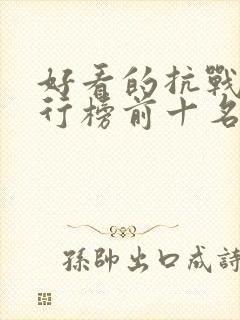 好看的抗戰
行榜前十名
孫帥出口成詩